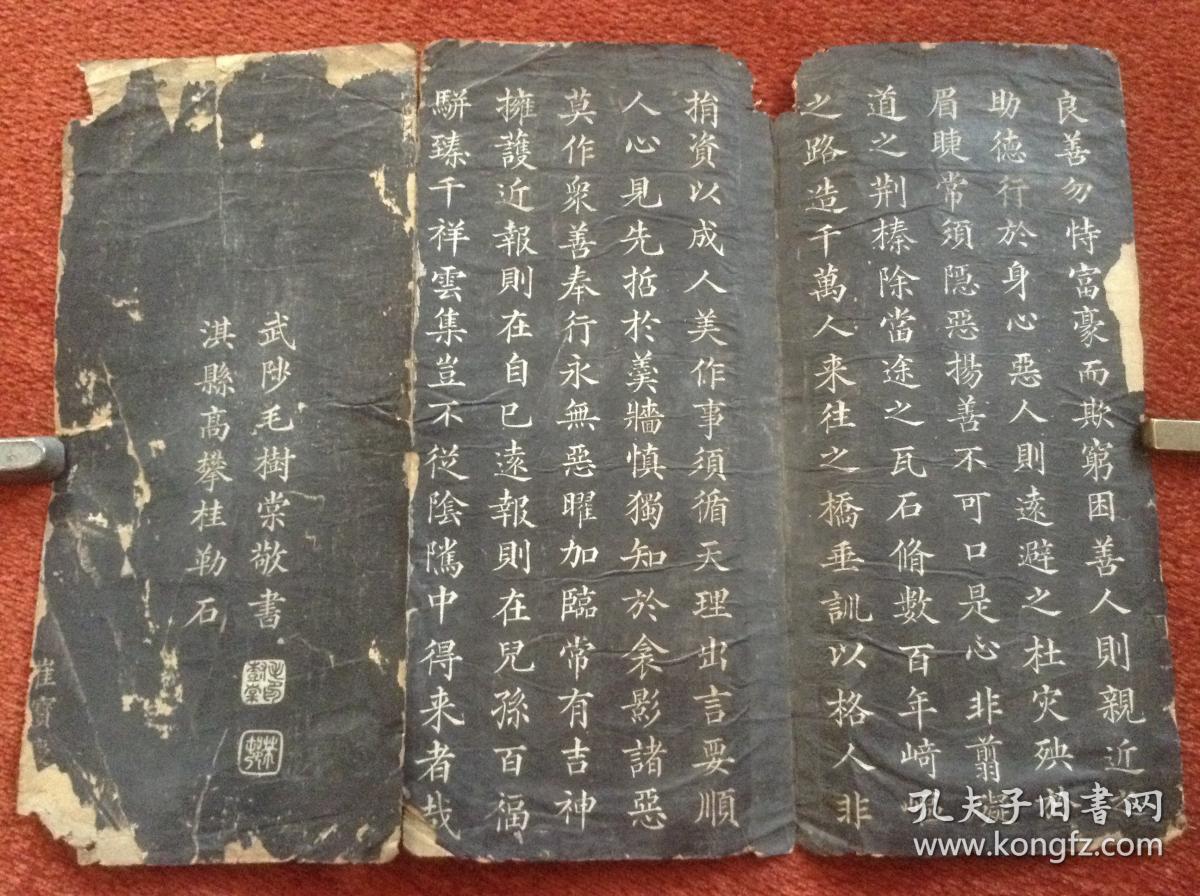 良善勿恃富豪而欺窮困善人則親近之
助德行於身心惡人則遠避之杜灾殃於
眉睫常須隱惡揚善不可口是心非翦礙
道之荆榛除當途之瓦石脩數百年崎嶇
之路造千萬人来往之橋垂訓以格人非
捐資以成人美作事須循天理出言要順
人心見先哲於羹牆慎獨知於衾影諸惡
莫作衆善奉行永無惡曜加臨常有吉神
擁護近報則在自已遠報則在兒孫百福
駢臻千祥雲集豈不從陰隲中得来者哉
武陟毛樹棠敬書
淇縣高攀桂勒石
崔寶
孔夫子旧書网
www.kongfz.com